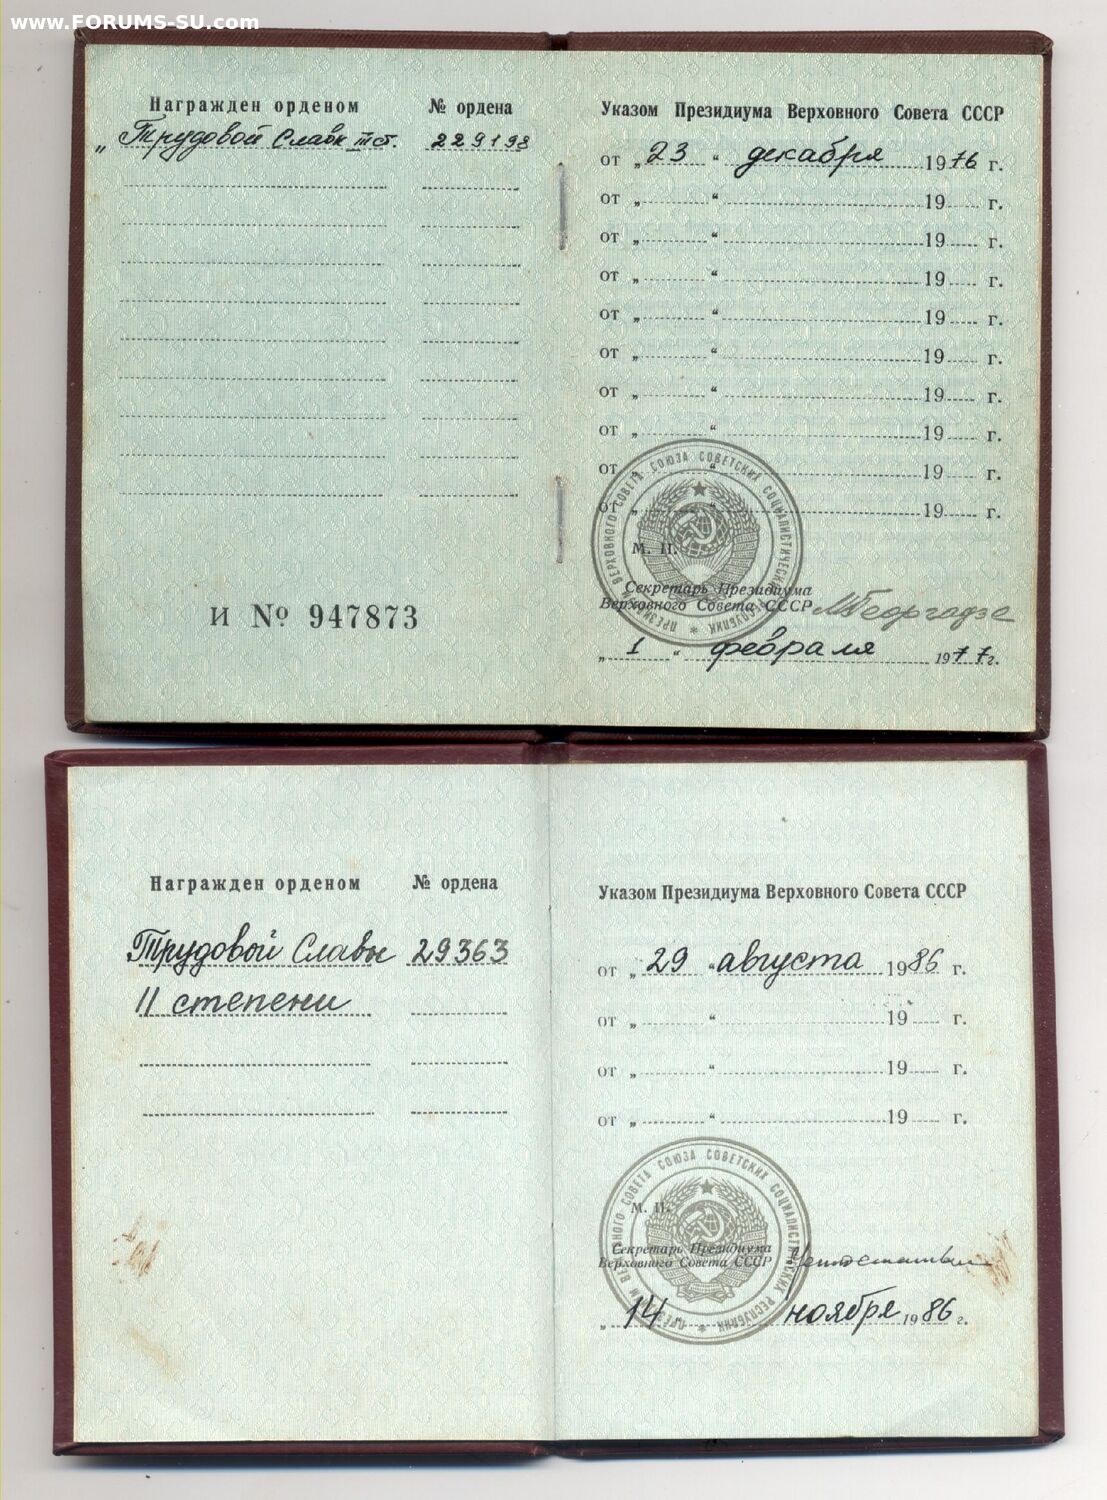 www.FORUMS-SU.com
Награжден орденом № ордена
„ Трудовой Славы ст. 229198
И № 947873
Указом Президиума Верховного Совета СССР
от „ 23 “ декабря 1976 г.
от „ “ 19 г.
от „ “ 19 г.
от „ “ 19 г.
от „ “ 19 г.
от „ “ 19 г.
от „ “ 19 г.
от „ “ 19 г.
от „ “ 19 г.
от „ “ 19 г.
ПРЕЗИДИУМ ВЕРХОВНОГО СОВЕТА СОЮЗА СОВЕТСКИХ СОЦИАЛИСТИЧЕСКИХ РЕСПУБЛИК
М. П.
Секретарь Президиума
Верховного Совета СССР МГеоргадзе
„ 1 “ февраля 1977 г.
Награжден орденом № ордена
Трудовой Славы 29363
II степени
Указом Президиума Верховного Совета СССР
от „ 29 “ августа 1986 г.
от „ “ 19 г.
от „ “ 19 г.
от „ “ 19 г.
ПРЕЗИДИУМ ВЕРХОВНОГО СОВЕТА СОЮЗА СОВЕТСКИХ СОЦИАЛИСТИЧЕСКИХ РЕСПУБЛИК
М. П.
Секретарь Президиума
Верховного Совета СССР
„ 14 ноября 1986 г.